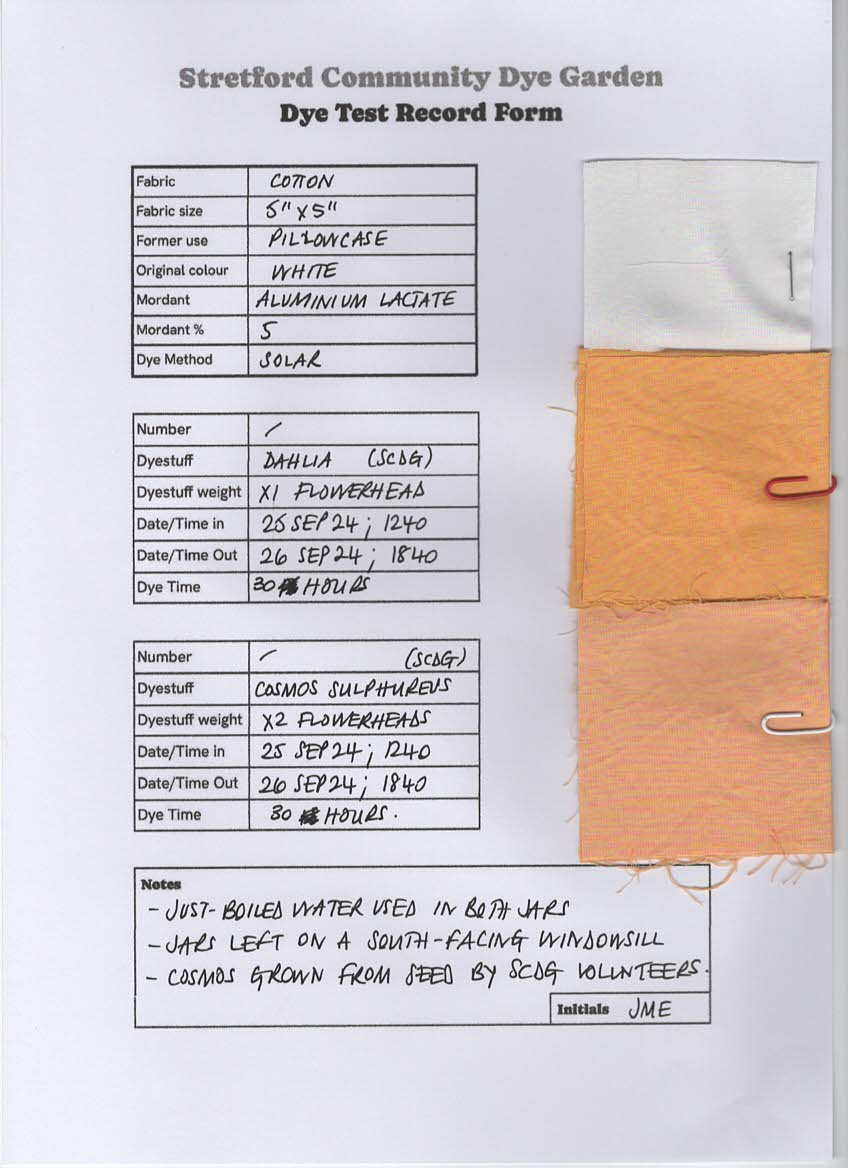 Stretford Community Dye Garden
Dye Test Record Form
Fabric COTTON
Fabric size 5" X 5"
Former use PILLOWCASE
Original colour WHITE
Mordant ALUMINIUM LACTATE
Mordant % 5
Dye Method SOLAR
Number /
Dyestuff DAHLIA (SCDG)
Dyestuff weight X1 FLOWERHEAD
Date/Time in 25 SEP 24; 1240
Date/Time Out 26 SEP 24; 1840
Dye Time 30 HOURS
Number / (SCDG)
Dyestuff COSMOS SULPHUREUS
Dyestuff weight X2 FLOWERHEADS
Date/Time in 25 SEP 24; 1240
Date/Time Out 26 SEP 24; 1840
Dye Time 30 HOURS.
Notes
- JUST-BOILED WATER USED IN BOTH JARS
- JARS LEFT ON A SOUTH-FACING WINDOWSILL
- COSMOS GROWN FROM SEED BY SCDG VOLUNTEERS.
Initials JME